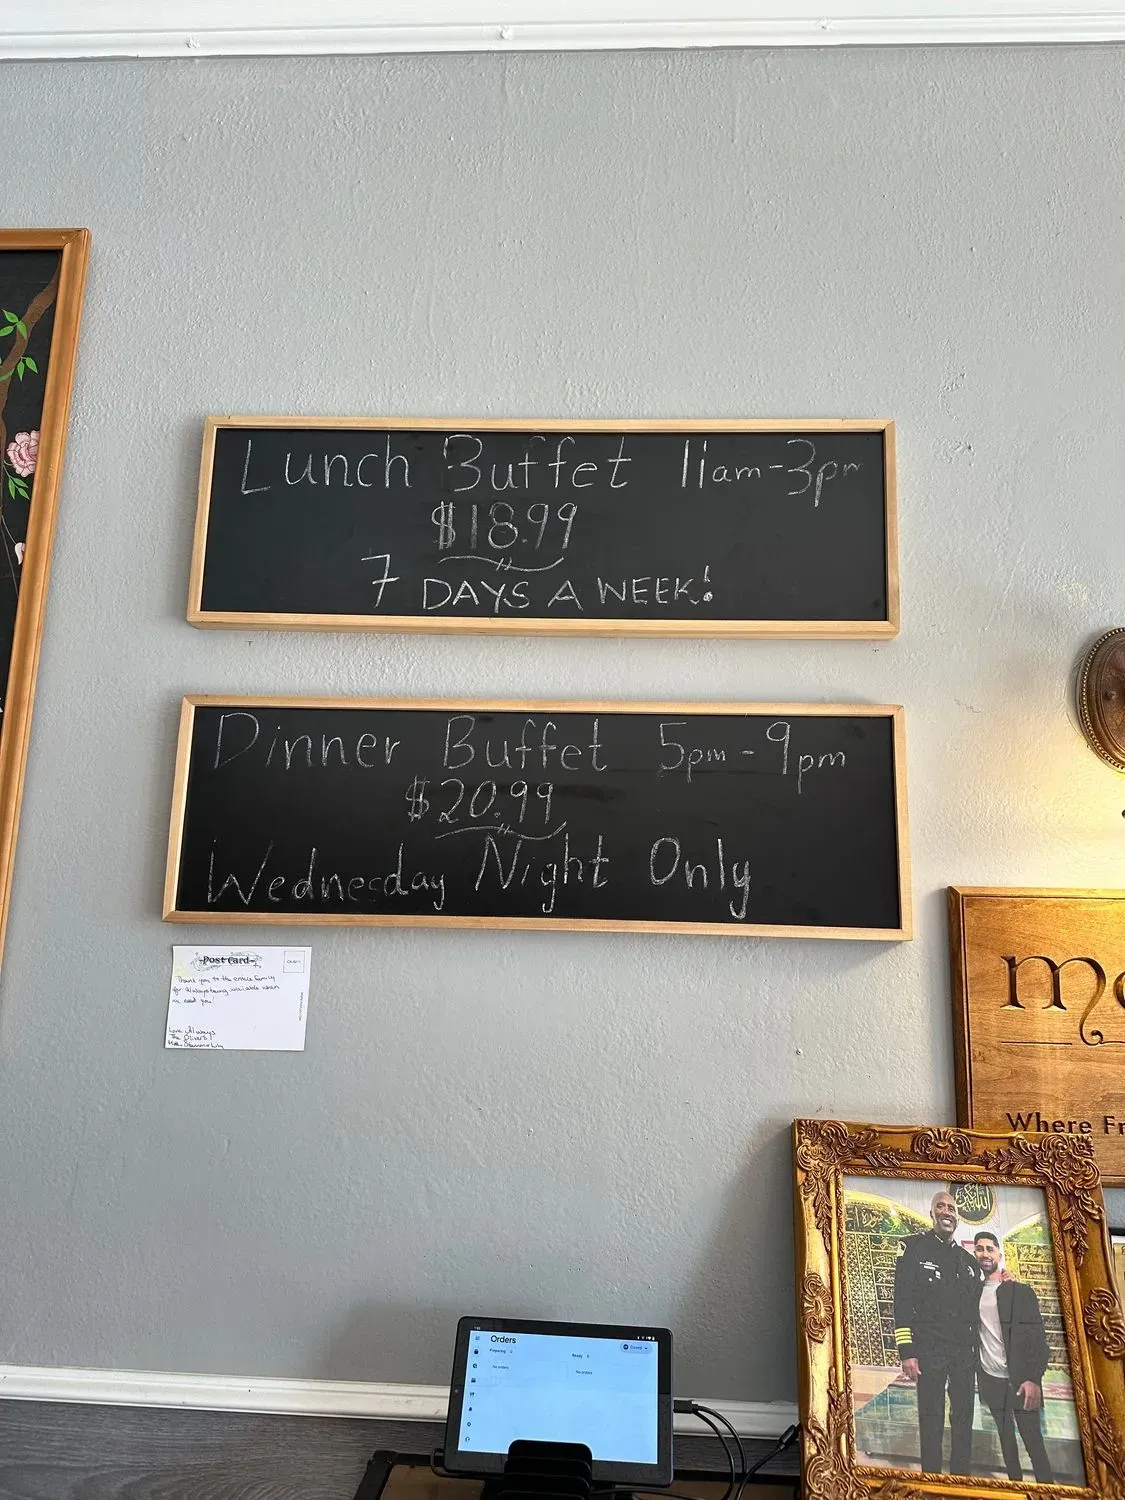 Lunch Buffet 11am-3pm
$18.99
7 DAYS A WEEK!
Dinner Buffet 5pm-9pm
$20.99
Wednesday Night Only
Post Card
Thank you to the entire family
for always being available when
we need you!
Love Always
The Olivers!
Orders
Preparing 0
Ready 0
Closed
No orders
No orders
Where Fr